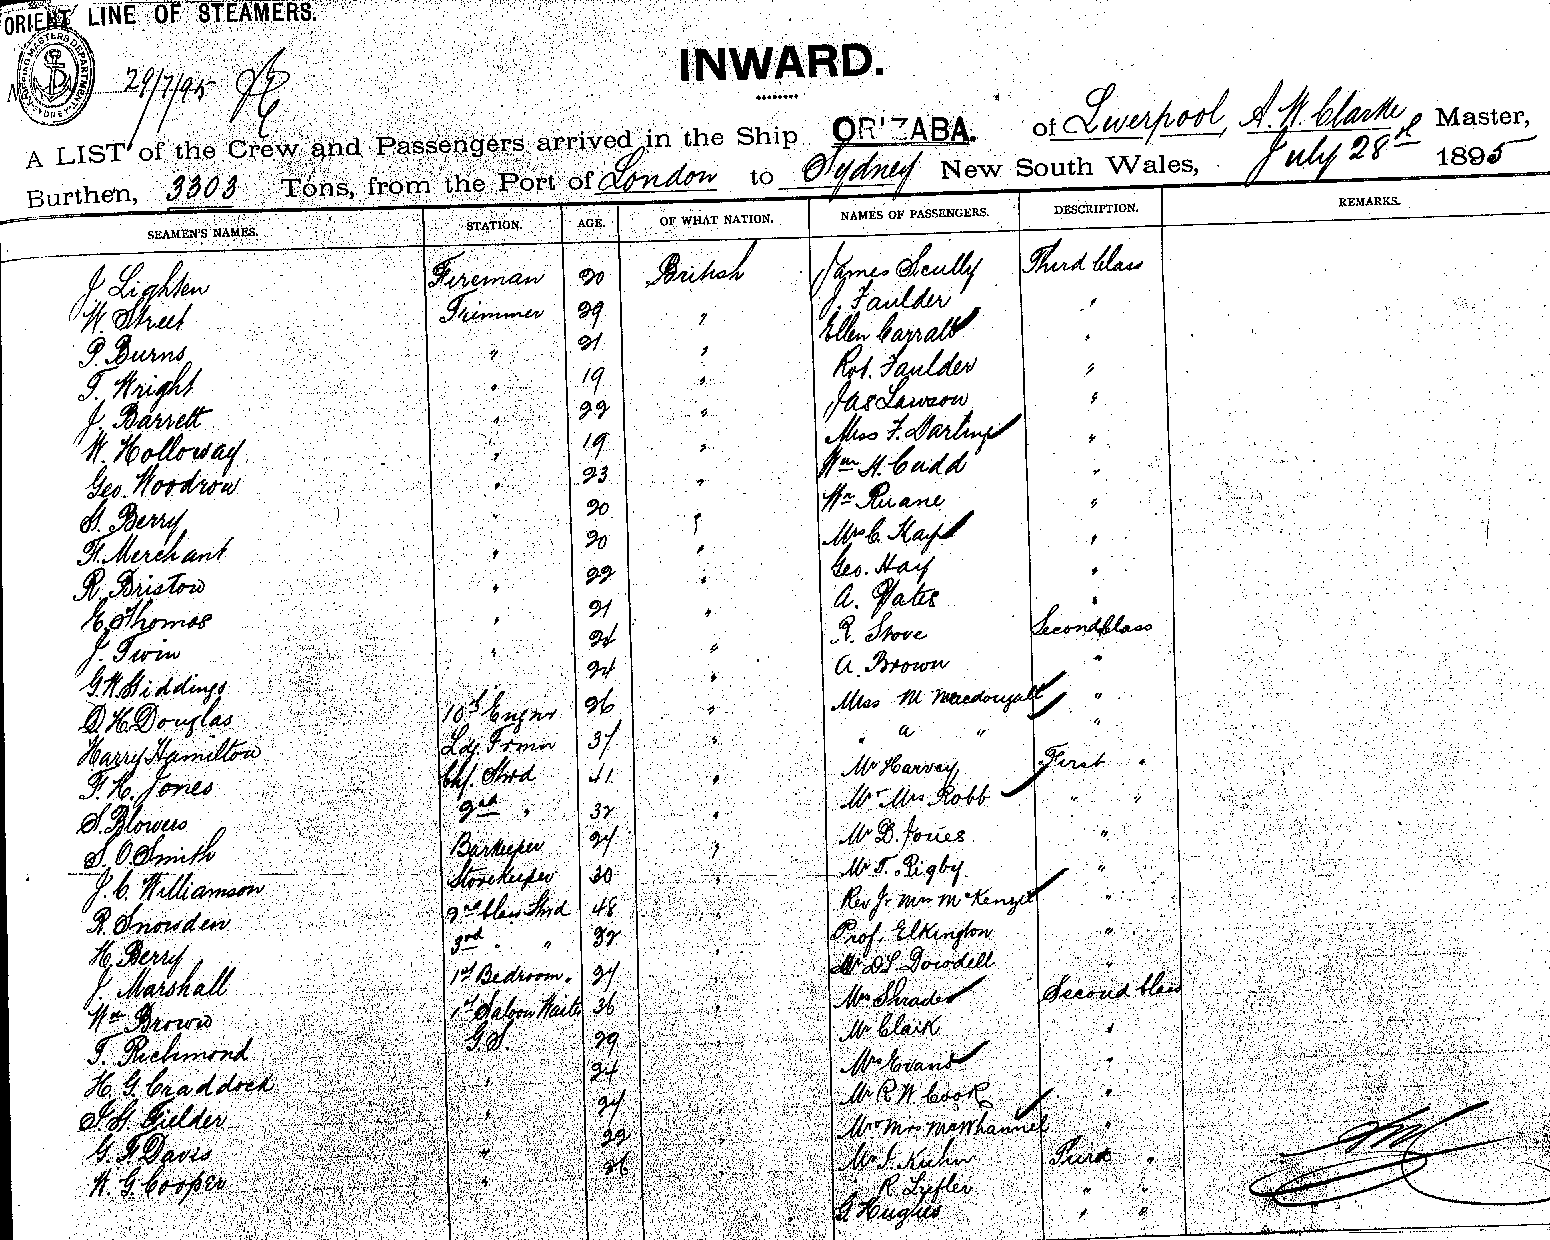 ORIENT LINE OF STEAMERS.
29/7/95
INWARD.
A LIST of the Crew and Passengers arrived in the Ship ORIZABA. of Liverpool, A. W. Clarke Master,
Burthen, 3303 Tons, from the Port of London to Sydney New South Wales, July 28th 1895
SEAMEN'S NAMES. STATION. AGE. OF WHAT NATION. NAMES OF PASSENGERS. DESCRIPTION. REMARKS.
J. Lighten Fireman 20 British James Scully Third Class
W. Street Trimmer 29 " J. Faulder "
P. Burns " 21 " Ellen Carratt "
T. Wright " 19 " Rob. Faulder "
J. Barrett " 22 " Jas Lawson "
W. Holloway " 19 " Miss F. Darling "
Geo. Woodrow " 23 " Wm H. Cudd "
Berry " 20 " Wm Ruane "
Merchant " 20 " Mrs C. Kay "
R. Bristow " 22 " Geo. Hay "
E. Thomas " 21 " A. Yates "
J. Twin " 24 " R. Stove Second Class
G. W. Giddings 24 " A. Brown "
D. H. Douglas 10th Engnr 26 " Miss M Macdougall "
Harry Hamilton Ldg. Frmn 37 " " a " "
F. H. Jones Chf. Stwd 41 " Mr Harvey First "
S. Blowers 2nd " 32 " Mr Mrs Robb " "
S. O. Smith Barkeeper 24 " Mr D. Jones "
J. C. Williamson Storekeeper 30 Mr T. Rigby "
R. Snowden 2nd Class Stwd 48 Rev J. Mrs McKenzie "
H. Berry 3rd " " 32 Prof. Elkington "
J. Marshall 1st Bedroom " 27 Mr D. L. Dowdell "
Wm Brown 1st Saloon Waiter 36 Mrs Shrader Second Class
T. Richmond G.S. 29 Mr Clark "
H. G. Craddock " 24 Mrs Evans "
Fielder " 24 Mr R. W. Cook "
G. F. Davis " 22 Mr Mrs McWhannel "
W. G. Cooper " 26 Mr J. Kuhn Third "
R. Lefler " "
G. Hughes " "